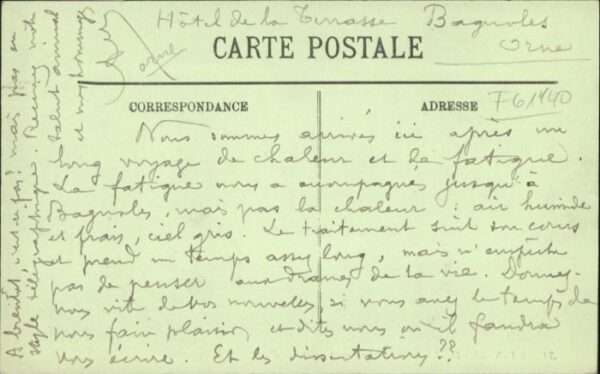 Hôtel de la Terrasse Bagnoles
Orne
Orne
CARTE POSTALE
CORRESPONDANCE
ADRESSE
F61140
Nous sommes arrivés ici après un
long voyage de chaleur et de fatigue.
La fatigue nous a accompagnés jusqu'à
Bagnoles, mais pas la chaleur : air humide
et frais, ciel gris. Le traitement suit son cours
et prend un temps assez long, mais n'empêche
pas de penser aux drames de la vie. Donnez-
nous vite de vos nouvelles si vous avez le temps de
nous faire plaisir, et dites nous où il faudra
vous écrire. Et les dissertations ??
A bientôt n'est-ce pas? mais pas en
style télégraphique. Recevez votre
salut amical
et mes hommages